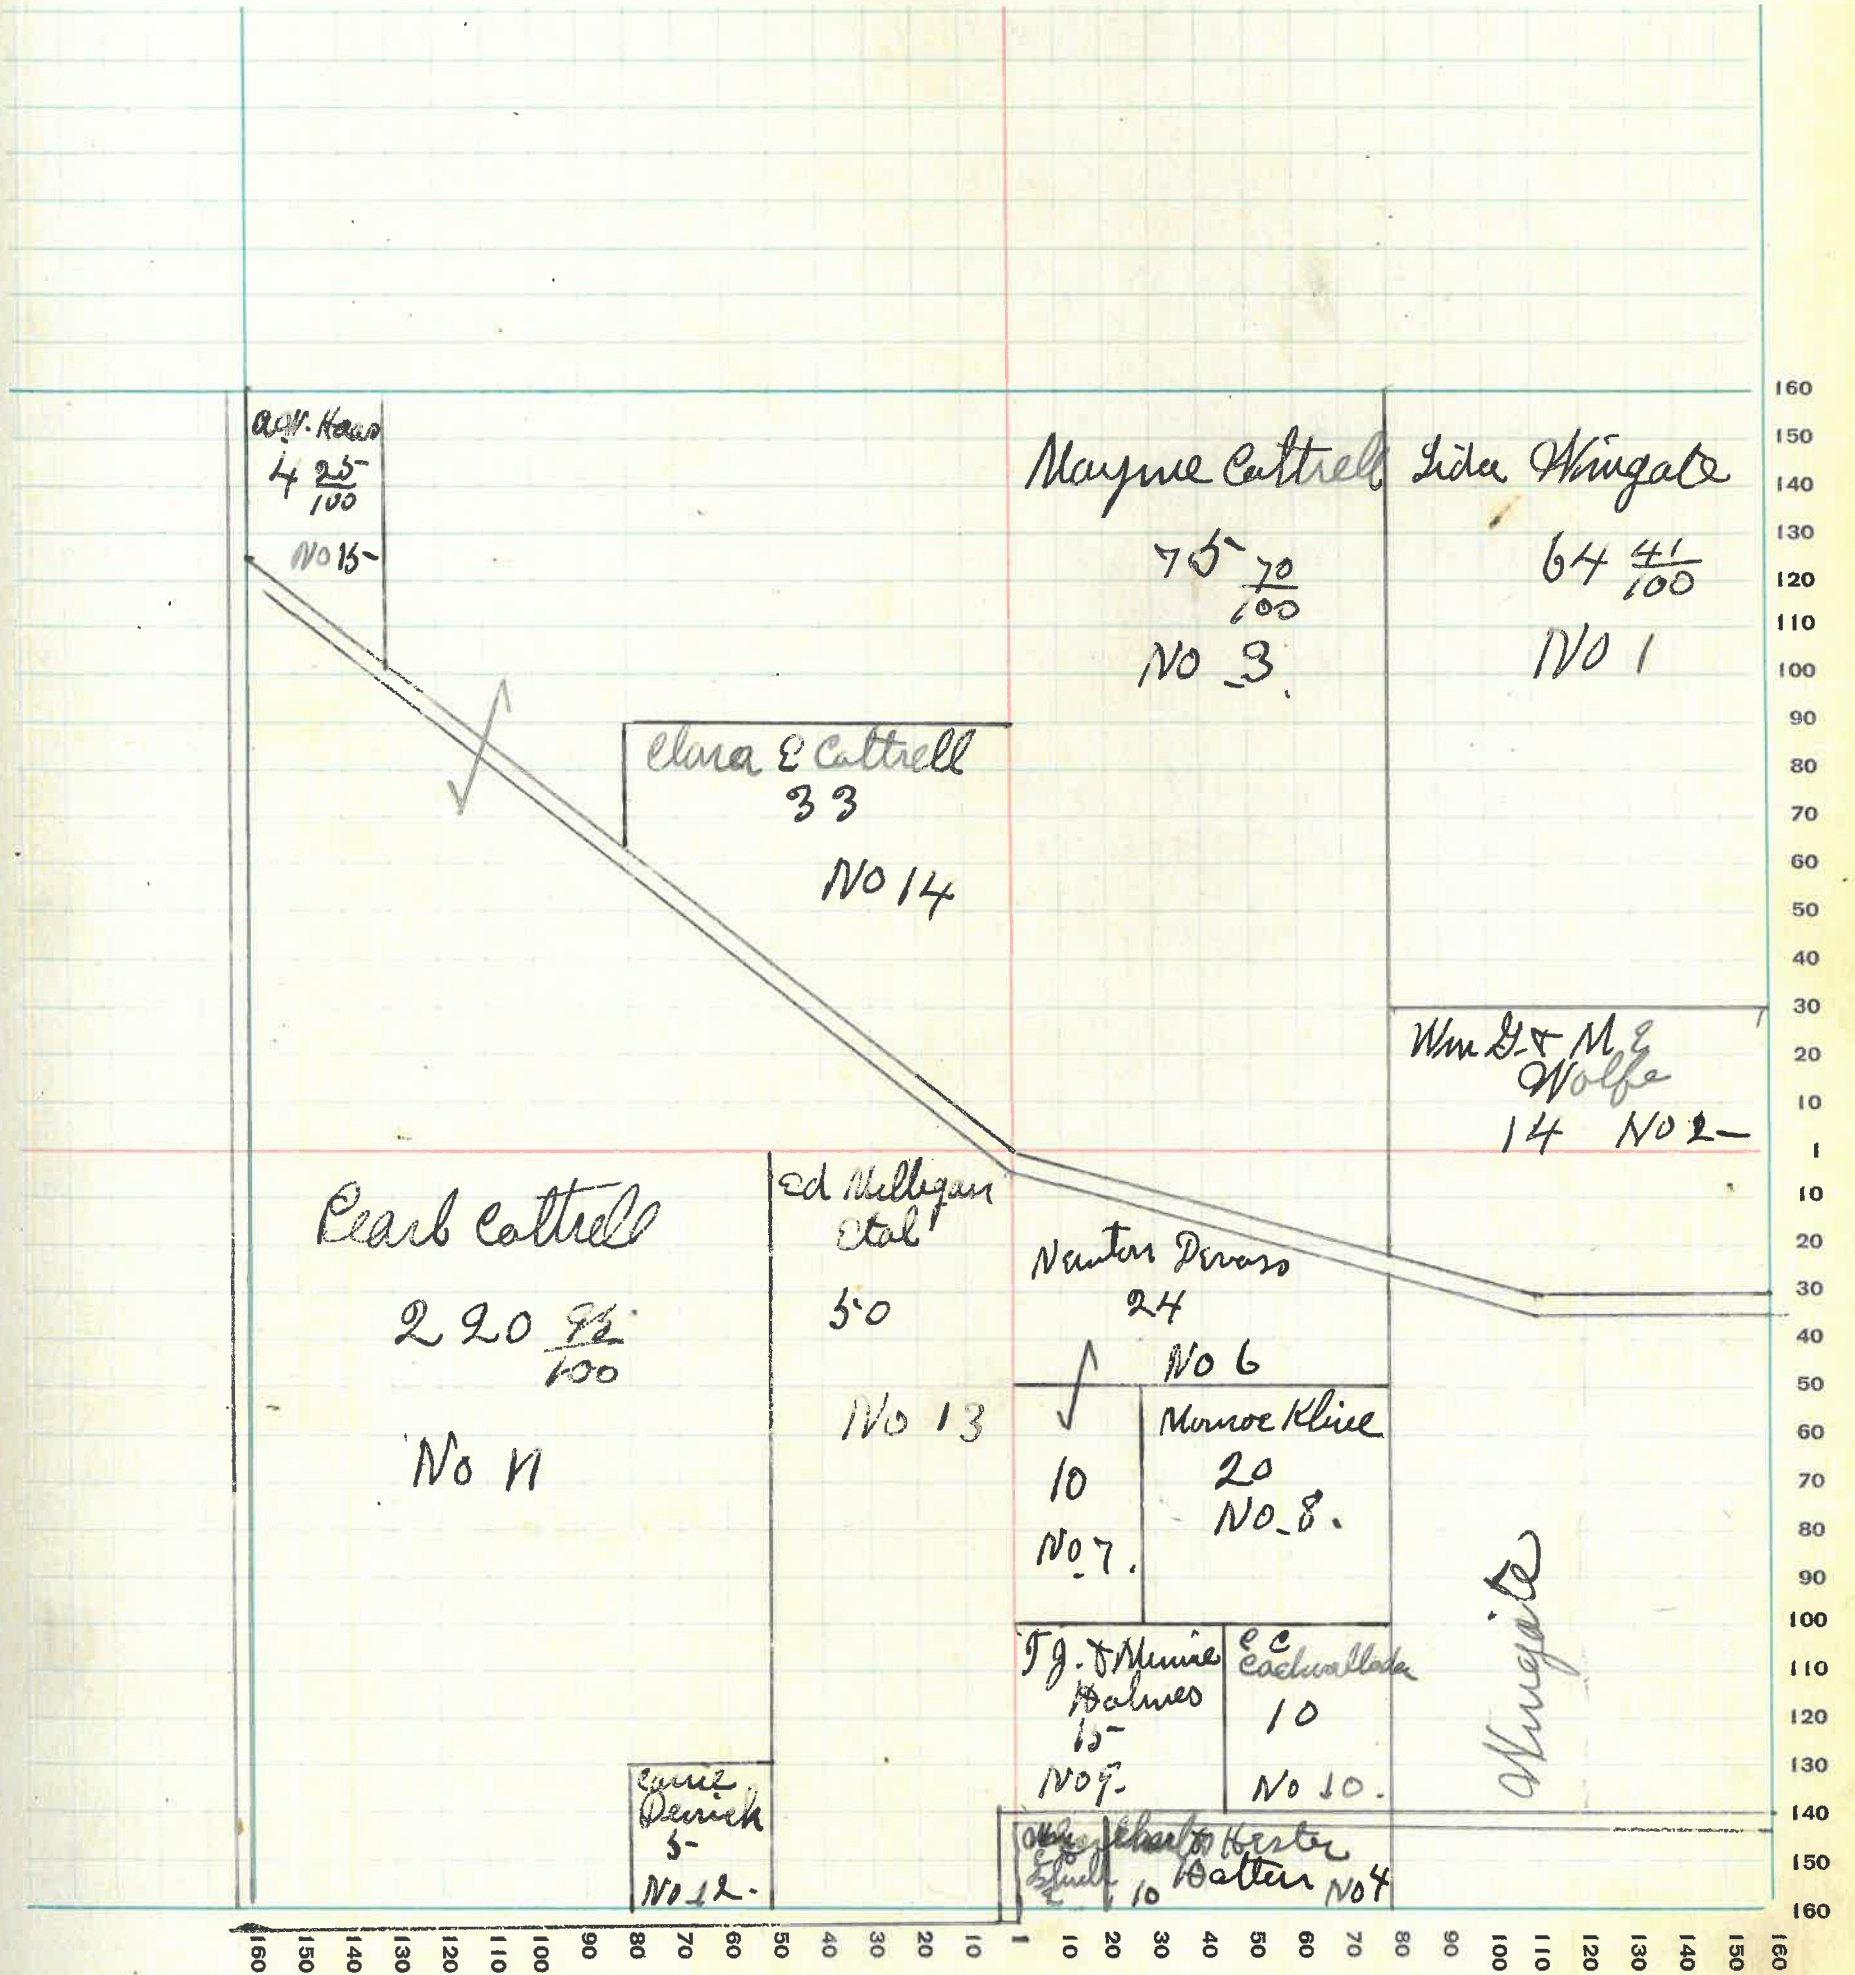 A. W. Haas
4 25/100
No 15
Mayme Cottrell
75 70/100
No 3.
Lida Wingate
64 41/100
No 1
Clara E Cottrell
33
No 14
Wm G. & M E
Wolfe
14 No 2
Pearl Cottrell
220 95/100
No 11
Ed Milligan
Etal
50
No 13
Newton Devass
24
No 6
10
No 7.
Monroe Kline
20
No 8.
T J. & Minnie
Holmes
15
No 9.
C C
Cadwallader
10
No 10.
Wingate
Carrie
Derrick
5
No 12.
Charles & Hester
Hatten No 4
10
160
150
140
130
120
110
100
90
80
70
60
50
40
30
20
10
1
10
20
30
40
50
60
70
80
90
100
110
120
130
140
150
160
160 150 140 130 120 110 100 90 80 70 60 50 40 30 20 10 1 10 20 30 40 50 60 70 80 90 100 110 120 130 140 150 160